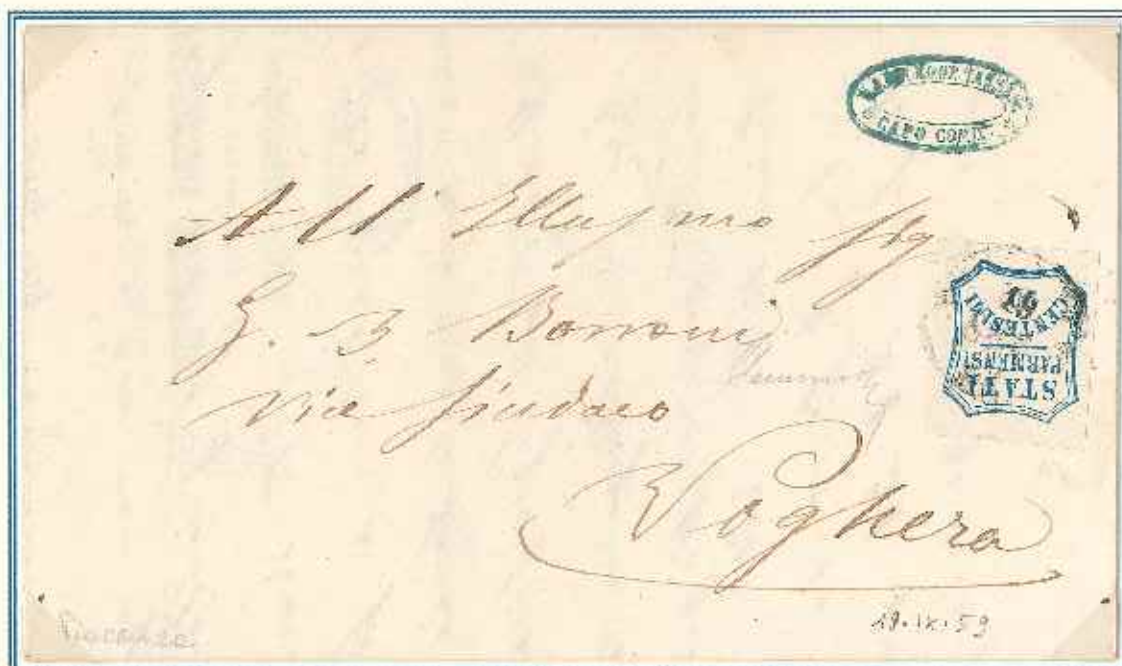 CAPO COMICO
All' Illus.mo Sig
G. B. Bononi
Vice Sindaco
Voghera
STATI
PARMENSI
CENTESIMI
Piacenza
19.IX.59